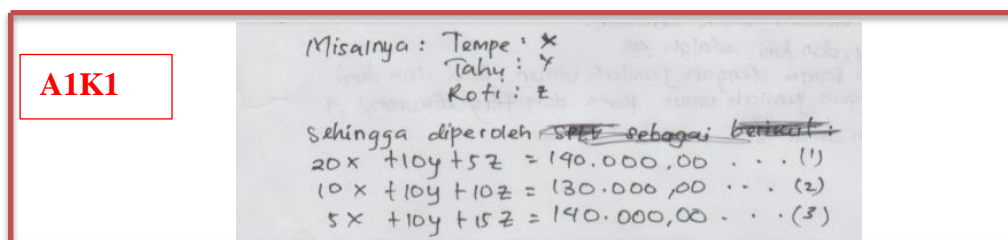 A1K1
Misalnya : Tempe : x
Tahu : y
Roti : z
sehingga diperoleh SPLTV sebagai berikut :
20x +10y +5z = 190.000,00 . . . (1)
10x +10y +10z = 130.000,00 . . . (2)
5x +10y +15z = 140.000,00 . . . (3)